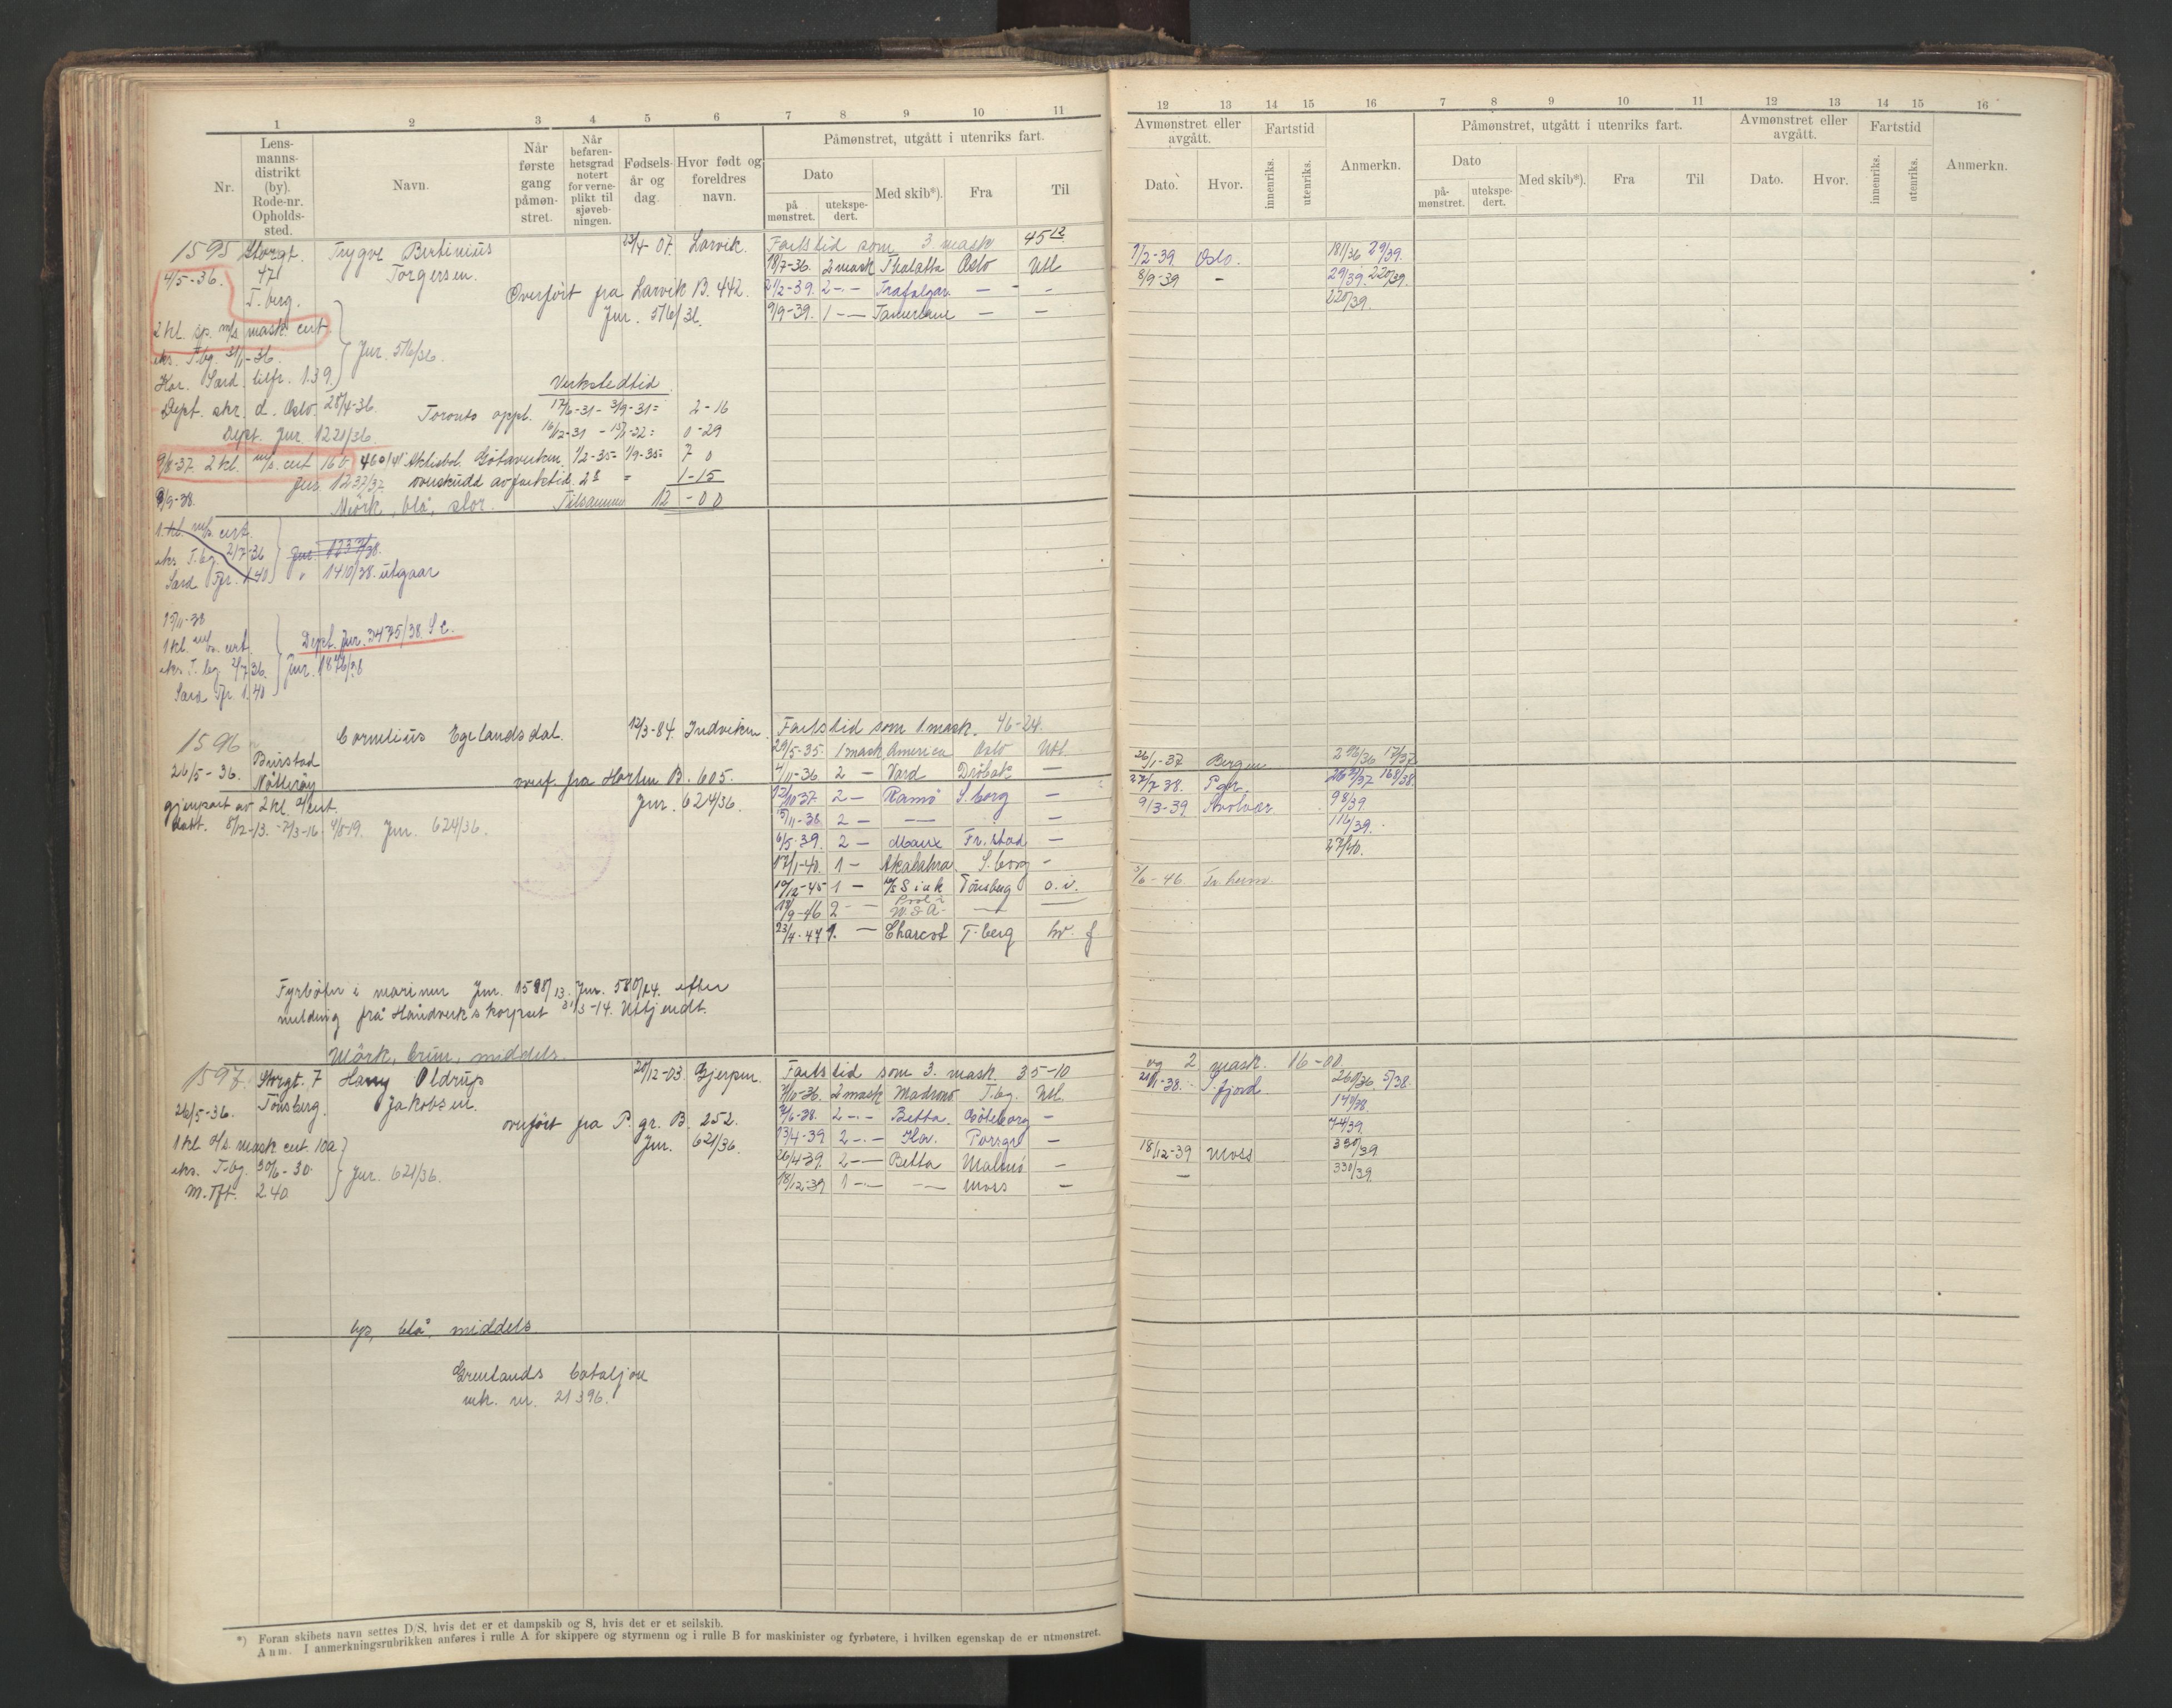 1 2 3 4 5 6 7 8 9 10 11
Nr.
Lens-
manns-
distrikt
(by).
Rode-nr.
Opholds-
sted.
Navn.
Når
første
gang
påmøn-
stret.
Når
befaren-
hetsgrad
notert
for verne-
plikt til
sjøveb-
ningen.
Fødsels-
år og
dag.
Hvor født og
foreldres
navn.
Påmønstret, utgått i utenriks fart.
Dato
på
mønstret.
utekspe-
dert.
Med skib*).
Fra
Til
1595 Storgt. Trygve Bertinius 23/4-07. Larvik. Fartstid som 3 mask 45 12
4/5-36. 47 Torgersen. 18/7-36. 2 mask Thalatta Oslo Utl
T. berg. Overført fra Larvik B. 442. 21/2-39. 2 -.- Trafalgar — - -
Jnr. 516/36. 9/9-39. 1 -- Tamerlane — —
2 kl. sp. m/s mask. cert
eks. T.bg. 31/1-36. Jnr. 516/36.
Hor. Sard. tilfr. 139.
Verkstedtid
Dept. skr. d. Oslo. 28/4-36. Toronto oppl. 17/6-31 - 3/9-31 = 2-16
Dept. Jnr. 1221/36. 16/12-31 - 15/1-32 = 0-29
9/8-37. 2 kl. m/s. cert 160 460/41 Aktiebol. Götaverken. 1/2-35 = 1/9-35 = 7 0
Jnr. 1237/37. overskudd av fartstid = 1-15
8/9-38. Mörk, blå, stor. Tilsammen 12-00
1. kl. m/s. cert.
eks T.bg. 2/7-36 Jnr. 1237/38.
Sard Tfr. 1.40 " 1410/38. utgaar
15/11-38
1 kl. m/s. cert. Dept. Jnr. 3475/38. S c.
eks T. bg 2/7 36. Jnr. 1876/38
Sard Tfr. 1.40
1596 Cornelius Egelandsdal. 12/3-84. Indviken. Fartstid som 1 mask. 46-24.
Buirstad 29/5-35. 1 mask America Oslo Utl.
26/5-36. Nötteröy overf. fra Horten B. 605. 4/11-36 2 — Vard Dröbak —
gjenpart av 2 kl. d/cert Jnr. 624/36. 12/10 37. 2 — Ramö S. borg —
datt. 8/12-13. - 7/3-16. 4/8-19. Jnr. 624/36. 15/11-38 2 — -- —
6/5-39. 2 — Maux Fr.stad —
17/1-40. 1 — Akabahra. S. borg -
19/12-45 1 — Tönsberg o. i.
18/9-46 2 -
23/4-47 1. — Charcot T-berg hv. f
Fyrböter i marinen Jnr. 1598/13. Jnr. 580/14. efter
melding frå Håndverkskorpset 31/3-14. Uttjendt.
Mörk, brun, middels.
1597. Storgt. 7 Harry Oldrup 20/12-03. Gjerpen. Fartstid som 3. mask. 35-10
26/5-36. Tönsberg. Jakobsen. 7/10-36. 2 mask Madrono T.bg. Utl.
overført fra P. gr. B. 252. 7/6-38. 2 -.- Betta. Göteborg -
1 kl d/s. mask cert. 10a Jnr. 621/36. 13/4-39 2 -.- Hav. Porsgr —
eks. T.bg. 30/6-30. Jnr. 621/36. 26/4-39. 2 -- Betta Malmö —
M. Tft. 2.40. 18/12-39 1 -.- -- Moss —
lys, blå, middels
Grenlands bataljon
rek. nr. 21396.
*) Foran skibets navn settes D/S, hvis det er et dampskib og S, hvis det er et seilskib.
Anm. I anmerkningsrubrikken anføres i rulle A for skippere og styrmenn og i rulle B for maskinister og fyrbøtere, i hvilken egenskap de er utmønstret.
12 13 14 15 16 7 8 9 10 11 12 13 14 15 16
Avmønstret eller
avgått.
Dato.
Hvor.
Fartstid
innenriks.
utenriks.
Anmerkn.
Påmønstret, utgått i utenriks fart.
Dato
på-
mønstret.
utekspe-
dert.
Med skib*).
Fra
Til
Avmønstret eller
avgått.
Dato.
Hvor.
Fartstid
innenriks.
utenriks.
Anmerkn.
7/2-39. Oslo. 181/36 29/39.
8/9-39 - 29/39. 220/39.
220/39.
26/1-37 Bergen 296/36 17/37
27/7 38. Pgr. 263/37 168/38.
9/3-39 Svolvær 98/39.
116/39.
27/40.
5/6-46
og 2 mask. 16-00
20/1-38. S. fjord. 260/36. 5/38.
140/38.
74/39.
18/12-39 Moss 330/39
— 330/39.